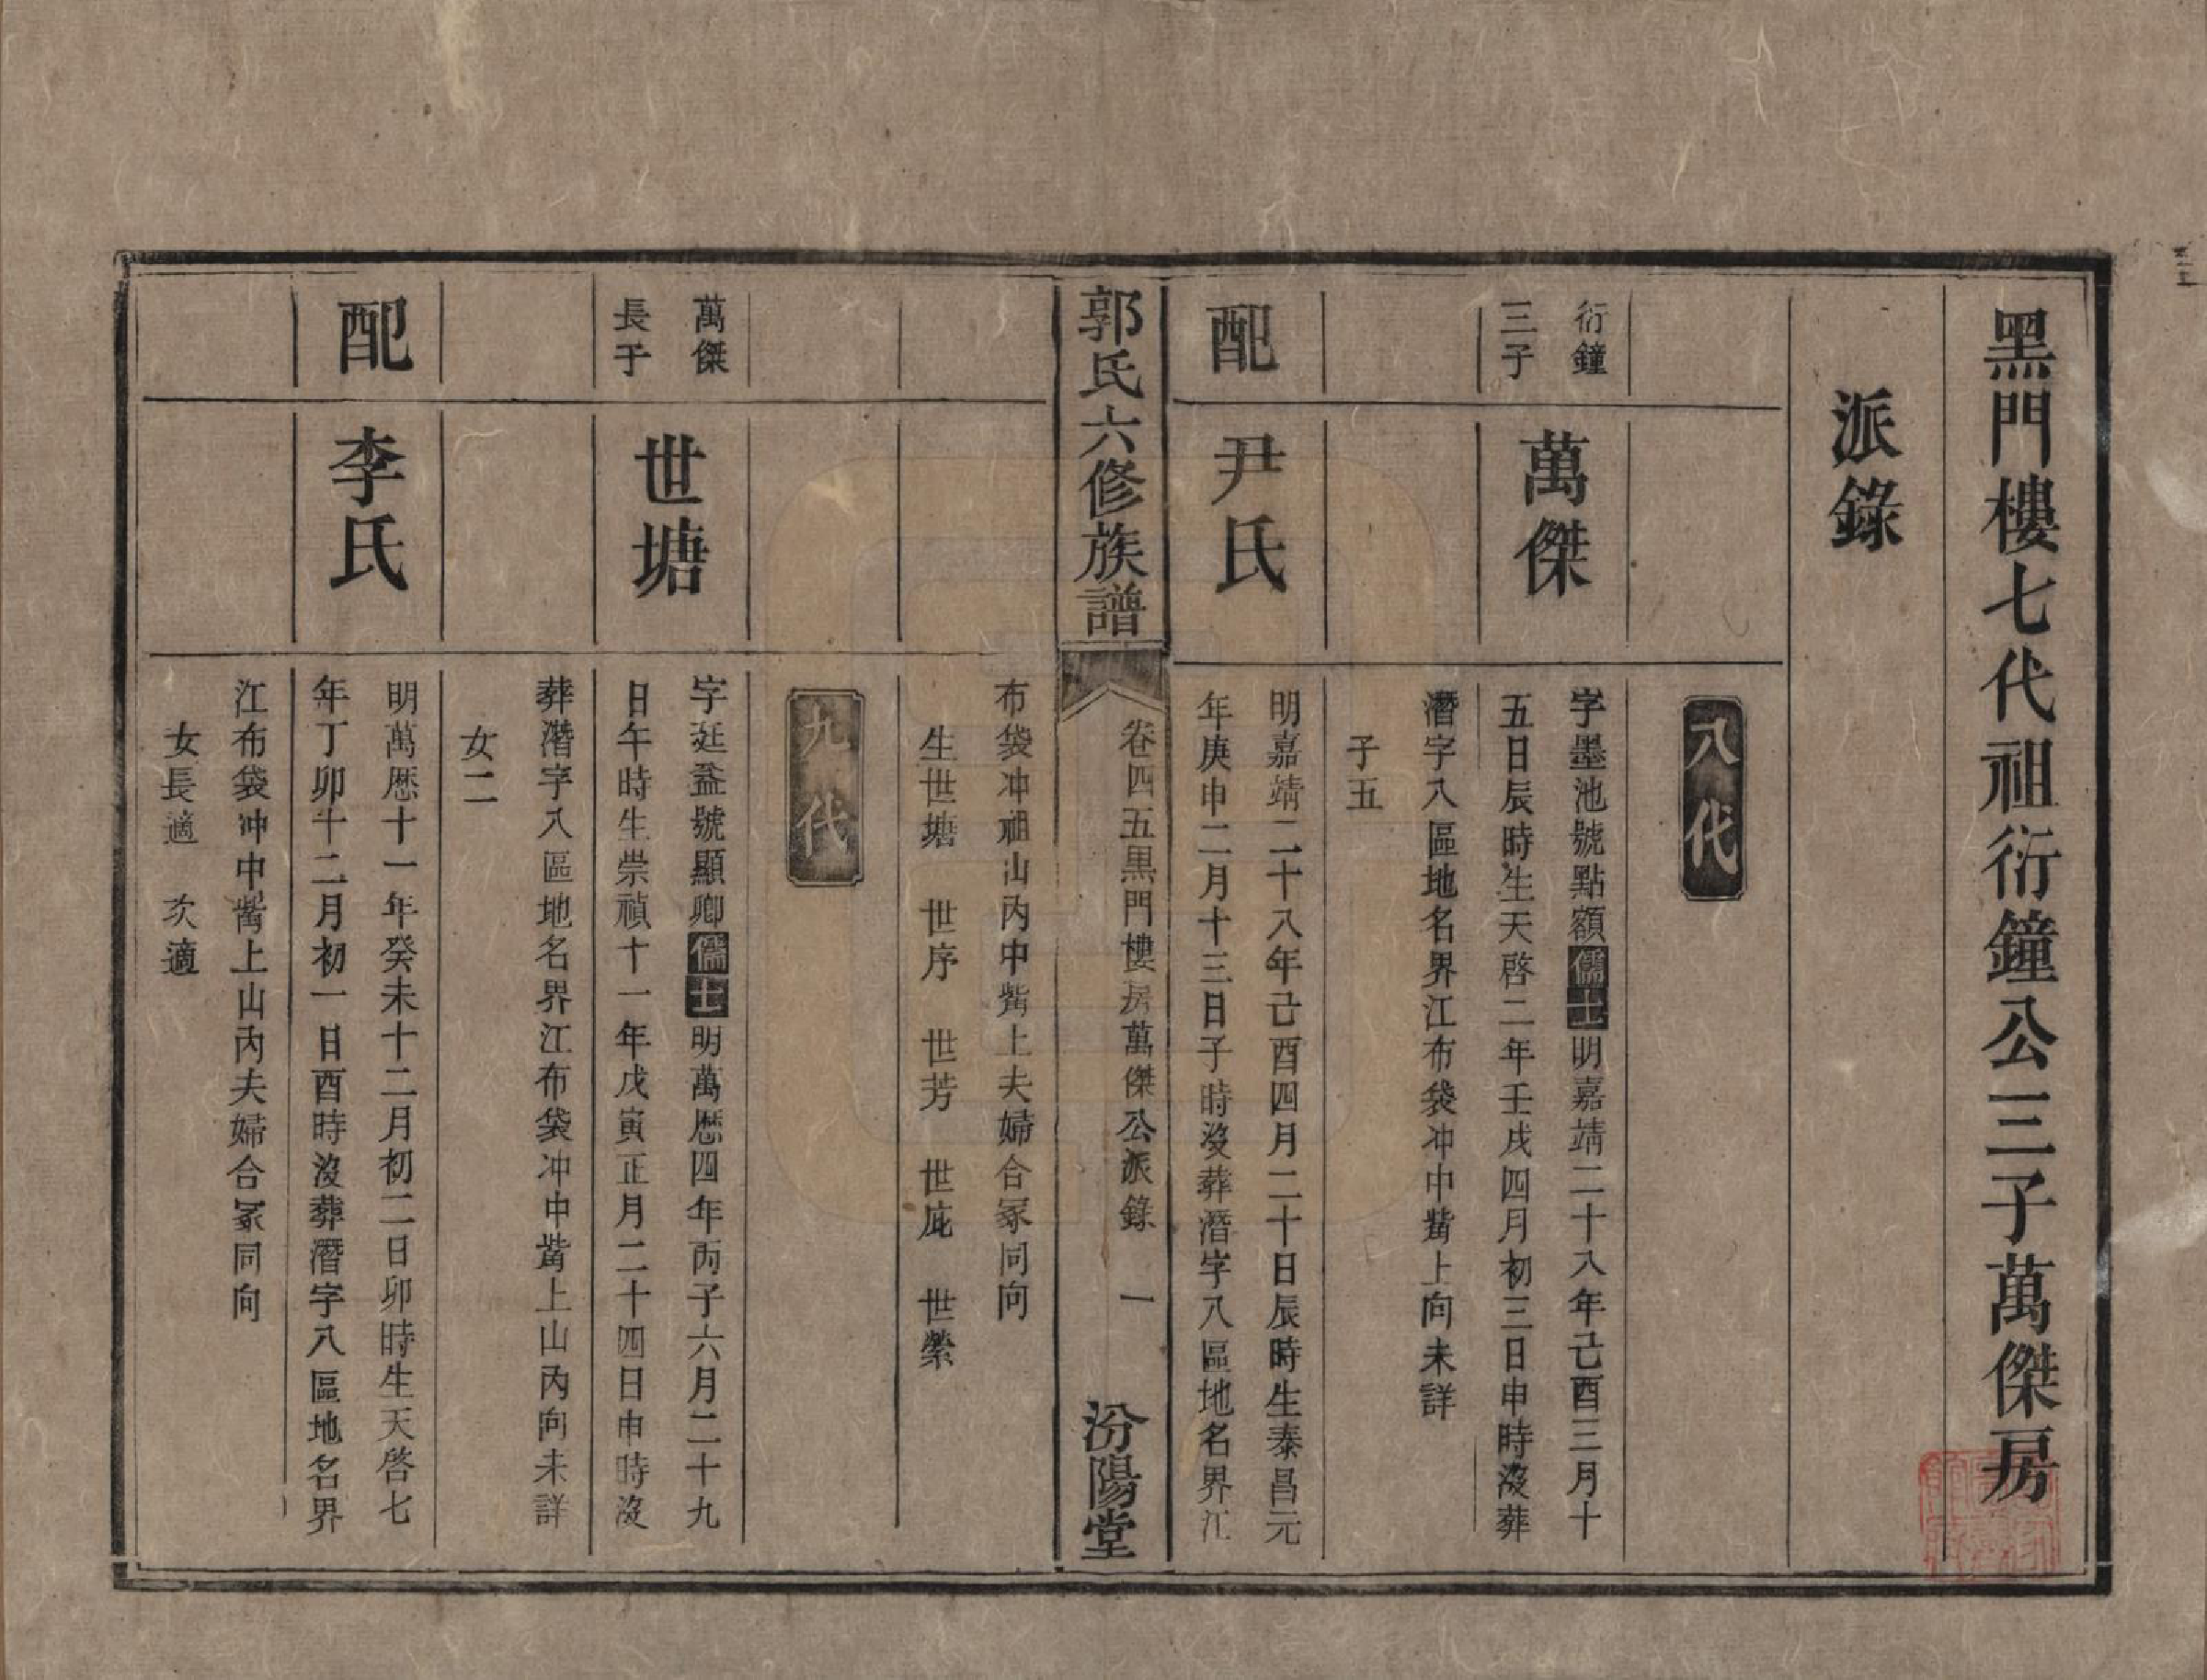 黑門樓七代祖衍鐘公三子萬傑房
派錄
八代
衍鐘
三子
萬傑
字墨池號點額儒士明嘉靖二十八年己酉三月十
五日辰時生天啓二年壬戌四月初三日申時沒葬
潛字八區地名界江布袋冲中嘴上向未詳
子五
配
尹氏
明嘉靖二十八年己酉四月二十日辰時生泰昌元
年庚申二月十三日子時沒葬潛字八區地名界江
郭氏六修族譜
卷四五黑門樓房萬傑公派錄 一
汾陽堂
布袋冲祖山內中嘴上夫婦合冢同向
生世塘 世序 世芳 世庇 世縈
九代
萬傑
長子
世塘
字延益號顯卿儒士明萬歷四年丙子六月二十九
日午時生崇禎十一年戊寅正月二十四日申時沒
葬潛字八區地名界江布袋冲中嘴上山內向未詳
女二
配
李氏
明萬歷十一年癸未十二月初二日卯時生天啓七
年丁卯十二月初一日酉時沒葬潛字八區地名界
江布袋冲中嘴上山內夫婦合冢同向
女長適 次適